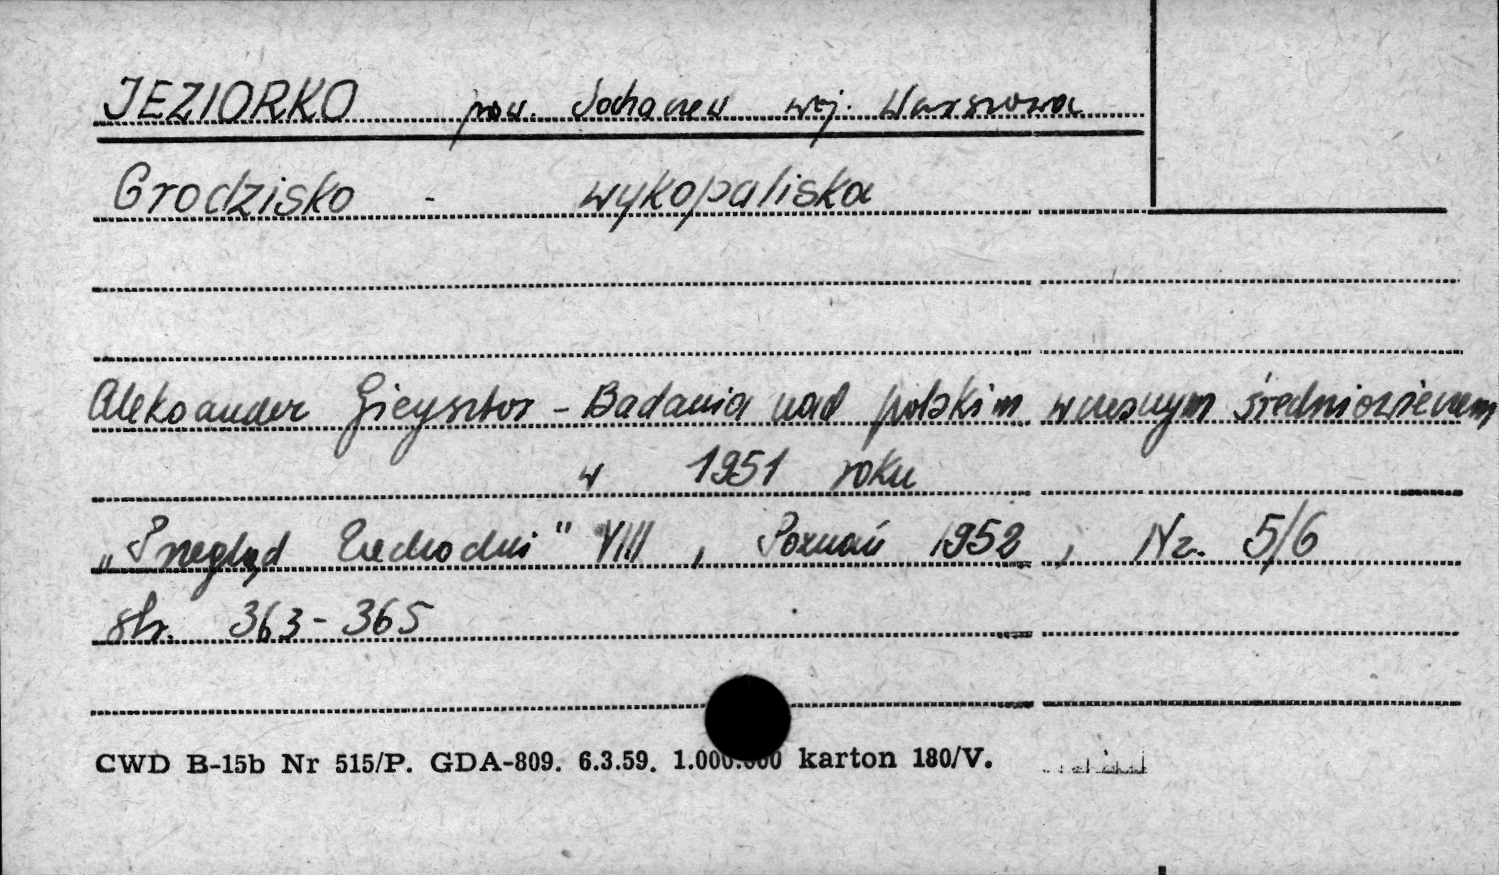 JEZIORKO pow. Sochaczew woj. Warszawa
Grodzisko - wykopaliska
Aleksander Gieysztor - Badania nad polskim wczesnym średniowieczem
w 1951 roku
„Przegląd Zachodni" VIII, Poznań 1952, Nr. 5/6
str. 363-365
CWD B-15b Nr 515/P. GDA-809. 6.3.59. 1.000.000 karton 180/V.